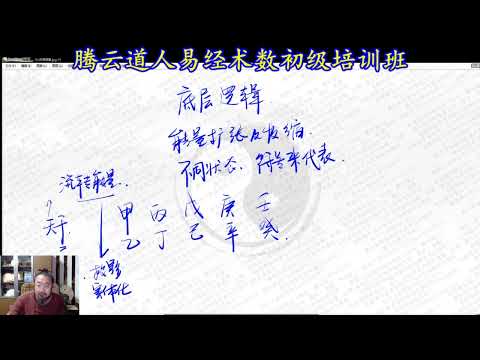 腾云道人易经术数初级培训班
底层逻辑
能量扩张及收缩.
不同状态、符号来代表.
天干
甲 丙 戊 庚 壬
乙 丁 己 辛 癸.
实体化